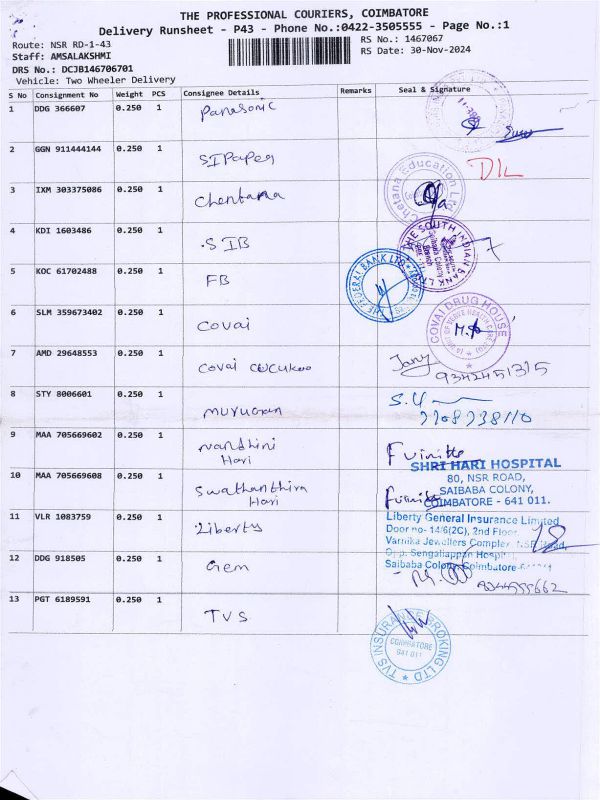 THE PROFESSIONAL COURIERS, COIMBATORE
Delivery Runsheet - P43 - Phone No.:0422-3505555 - Page No.:1
Route: NSR RD-1-43
RS No.: 1467067
Staff: AMSALAKSHMI
RS Date: 30-Nov-2024
DRS No.: DCJB146706701
Vehicle: Two Wheeler Delivery
S No Consignment No Weight PCS Consignee Details Remarks Seal & Signature
1 DDG 366607 0.250 1 Panasonic
2 GGN 911444144 0.250 1 SIPaper
DIL
3 IXM 303375086 0.250 1 Chentana
Chetana Education Ltd
4 KDI 1603486 0.250 1 SIB
THE SOUTH INDIAN BANK LTD
Saibaba Colony
Branch
5 KOC 61702488 0.250 1 FB
THE FEDERAL BANK LTD
6 SLM 359673402 0.250 1 Covai
COVAI DRUG HOUSE
7 AMD 29648553 0.250 1 Covai
9342451315
8 STY 8006601 0.250 1 Murugan
9 MAA 705669602 0.250 1 Nandhini
Hari
SHRI HARI HOSPITAL
80, NSR ROAD,
SAIBABA COLONY,
COIMBATORE - 641 011.
10 MAA 705669608 0.250 1 Swathanthira
Hari
11 VLR 1083759 0.250 1 Liberty
Liberty General Insurance Limited
Door no- 14/6(2C), 2nd Floor
Varnika Jewellers Complex NSR Road,
Opp. Sengaliappan Hospital,
Saibaba Colony, Coimbatore-641011
12 DDG 918505 0.250 1 Gem
13 PGT 6189591 0.250 1 TVS
TVS INSURANCE BROKING LTD
COIMBATORE
641 011